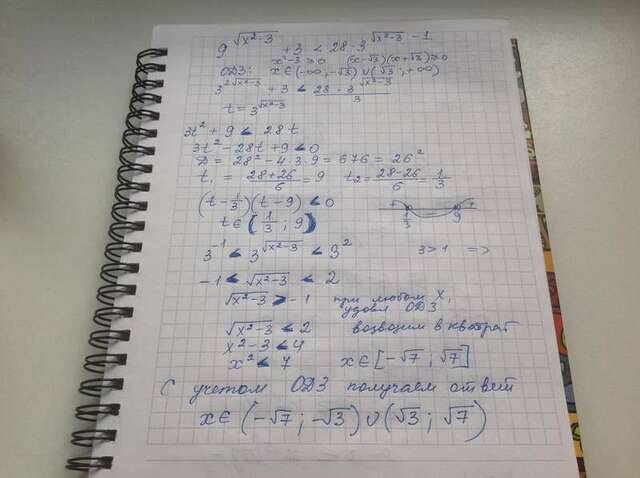 9^√(x²-3) + 3 < 28·3^(√(x²-3) - 1)
x²-3≥0 (x-√3)(x+√3)≥0
ОДЗ: x∈(-∞; -√3)∪(√3; +∞)
3^(2√(x²-3)) + 3 < 28·3^√(x²-3)/3
t = 3^√(x²-3)
3t² + 9 < 28t
3t² - 28t + 9 < 0
D = 28² - 4·3·9 = 676 = 26²
t₁ = (28+26)/6 = 9 t₂ = (28-26)/6 = 1/3
(t - 1/3)(t - 9) < 0 + - +
t∈(1/3; 9) 1/3 9
3⁻¹ < 3^√(x²-3) < 3² 3>1 =>
-1 < √(x²-3) < 2
√(x²-3) > -1 при любом x,
удовл ОДЗ
√(x²-3) < 2 возводим в квадрат
x²-3 < 4
x² < 7 x∈[-√7; √7]
С учетом ОДЗ получаем ответ
x∈(-√7; -√3)∪(√3; √7)